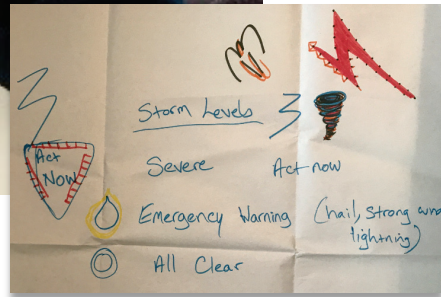 Storm Levels
Act
Now
Severe Act now
Emergency Warning (hail, strong
lightning)
All Clear